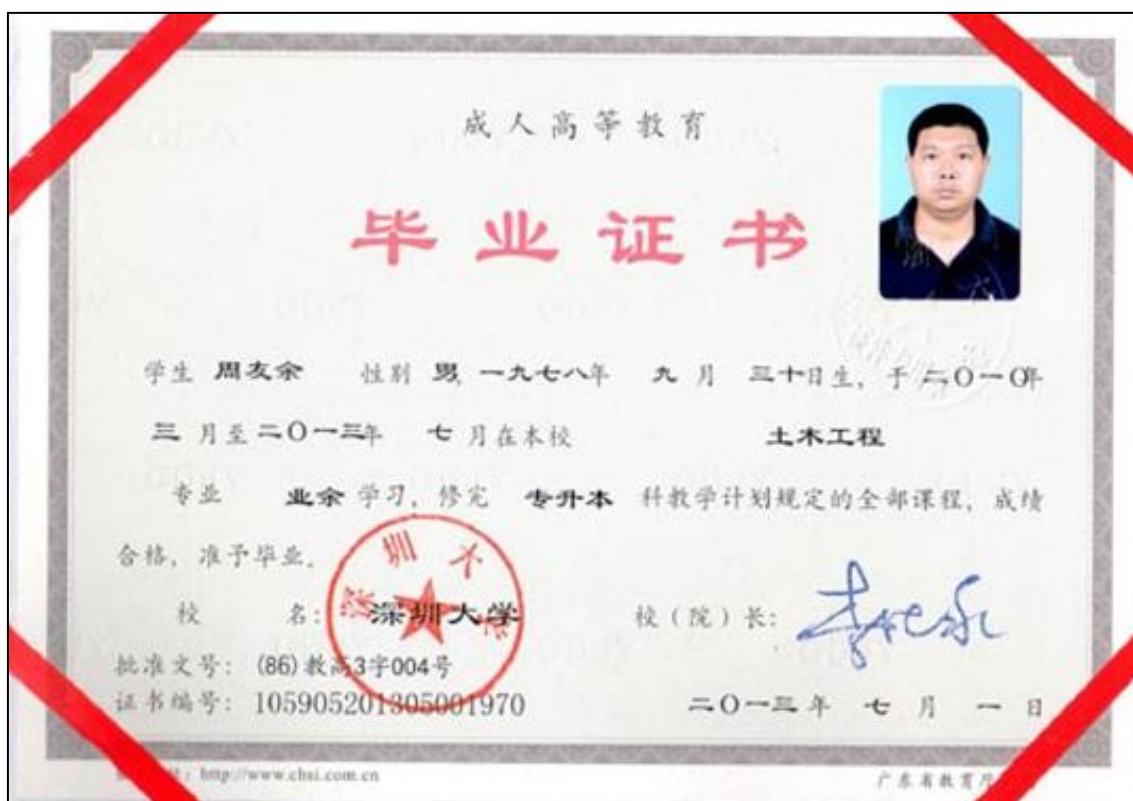 成人高等教育
毕业证书
学生 周友余 性别 男, 一九七八年 九 月 三十日生, 于 二〇一〇年
三 月至 二〇一三年 七 月在本校 土木工程
专业 业余 学习, 修完 专升本 科教学计划规定的全部课程, 成绩
合格, 准予毕业。
校 名: 深圳大学 校(院)长:
深圳大学
批准文号: (86)教高3字004号
证书编号: 105905201305001970 二〇一三年 七 月 一 日
http://www.chsi.com.cn 广东省教育厅